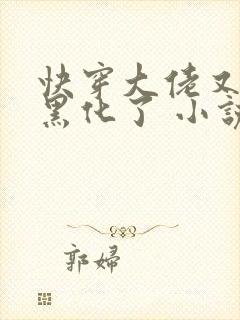 快穿大佬又
黑化了 小說
郭婦